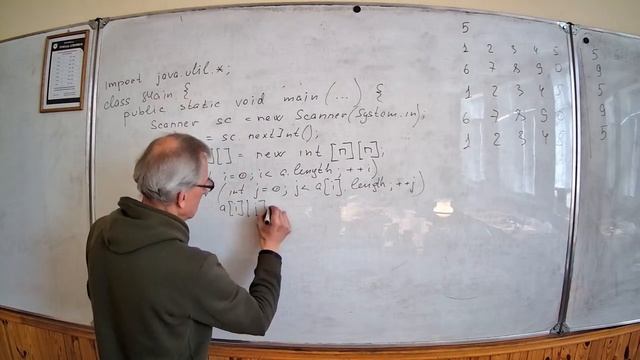 import java.util.*;
class Main {
public static void main (...) {
Scanner sc = new Scanner (System.in);
= sc.nextInt();
[] = new int [n][n];
i=0; i< a.length; ++i)
(int j=0; j< a[i].length; ++j)
a[i][j]
5
1 2 3 4 5
6 7 8 9 0
1 2 3 4 5
6 7 8 9 0
1 2 3 4 5
5
9
5
9
5